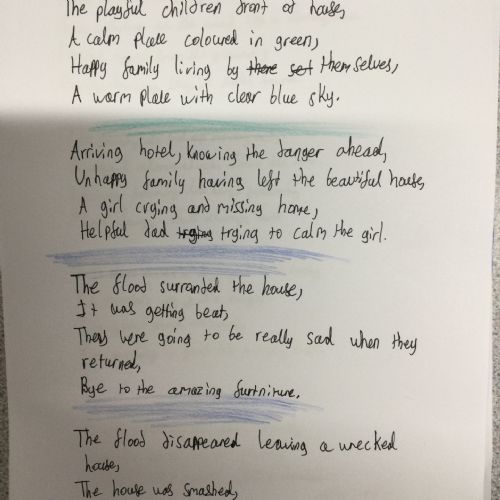 The playful children front of house,
A calm place coloured in green,
Happy family living by there set themselves,
A warm place with clear blue sky.
Arriving hotel, knowing the danger ahead,
Unhappy family having left the beautiful house,
A girl crying and missing home,
Helpful dad trging trying to calm the girl.
The flood surranded the house,
It was getting beat,
They were going to be really sad when they
returned,
Bye to the amazing furtniture.
The flood disappeared leaving a wrecked
house,
The house was smashed,